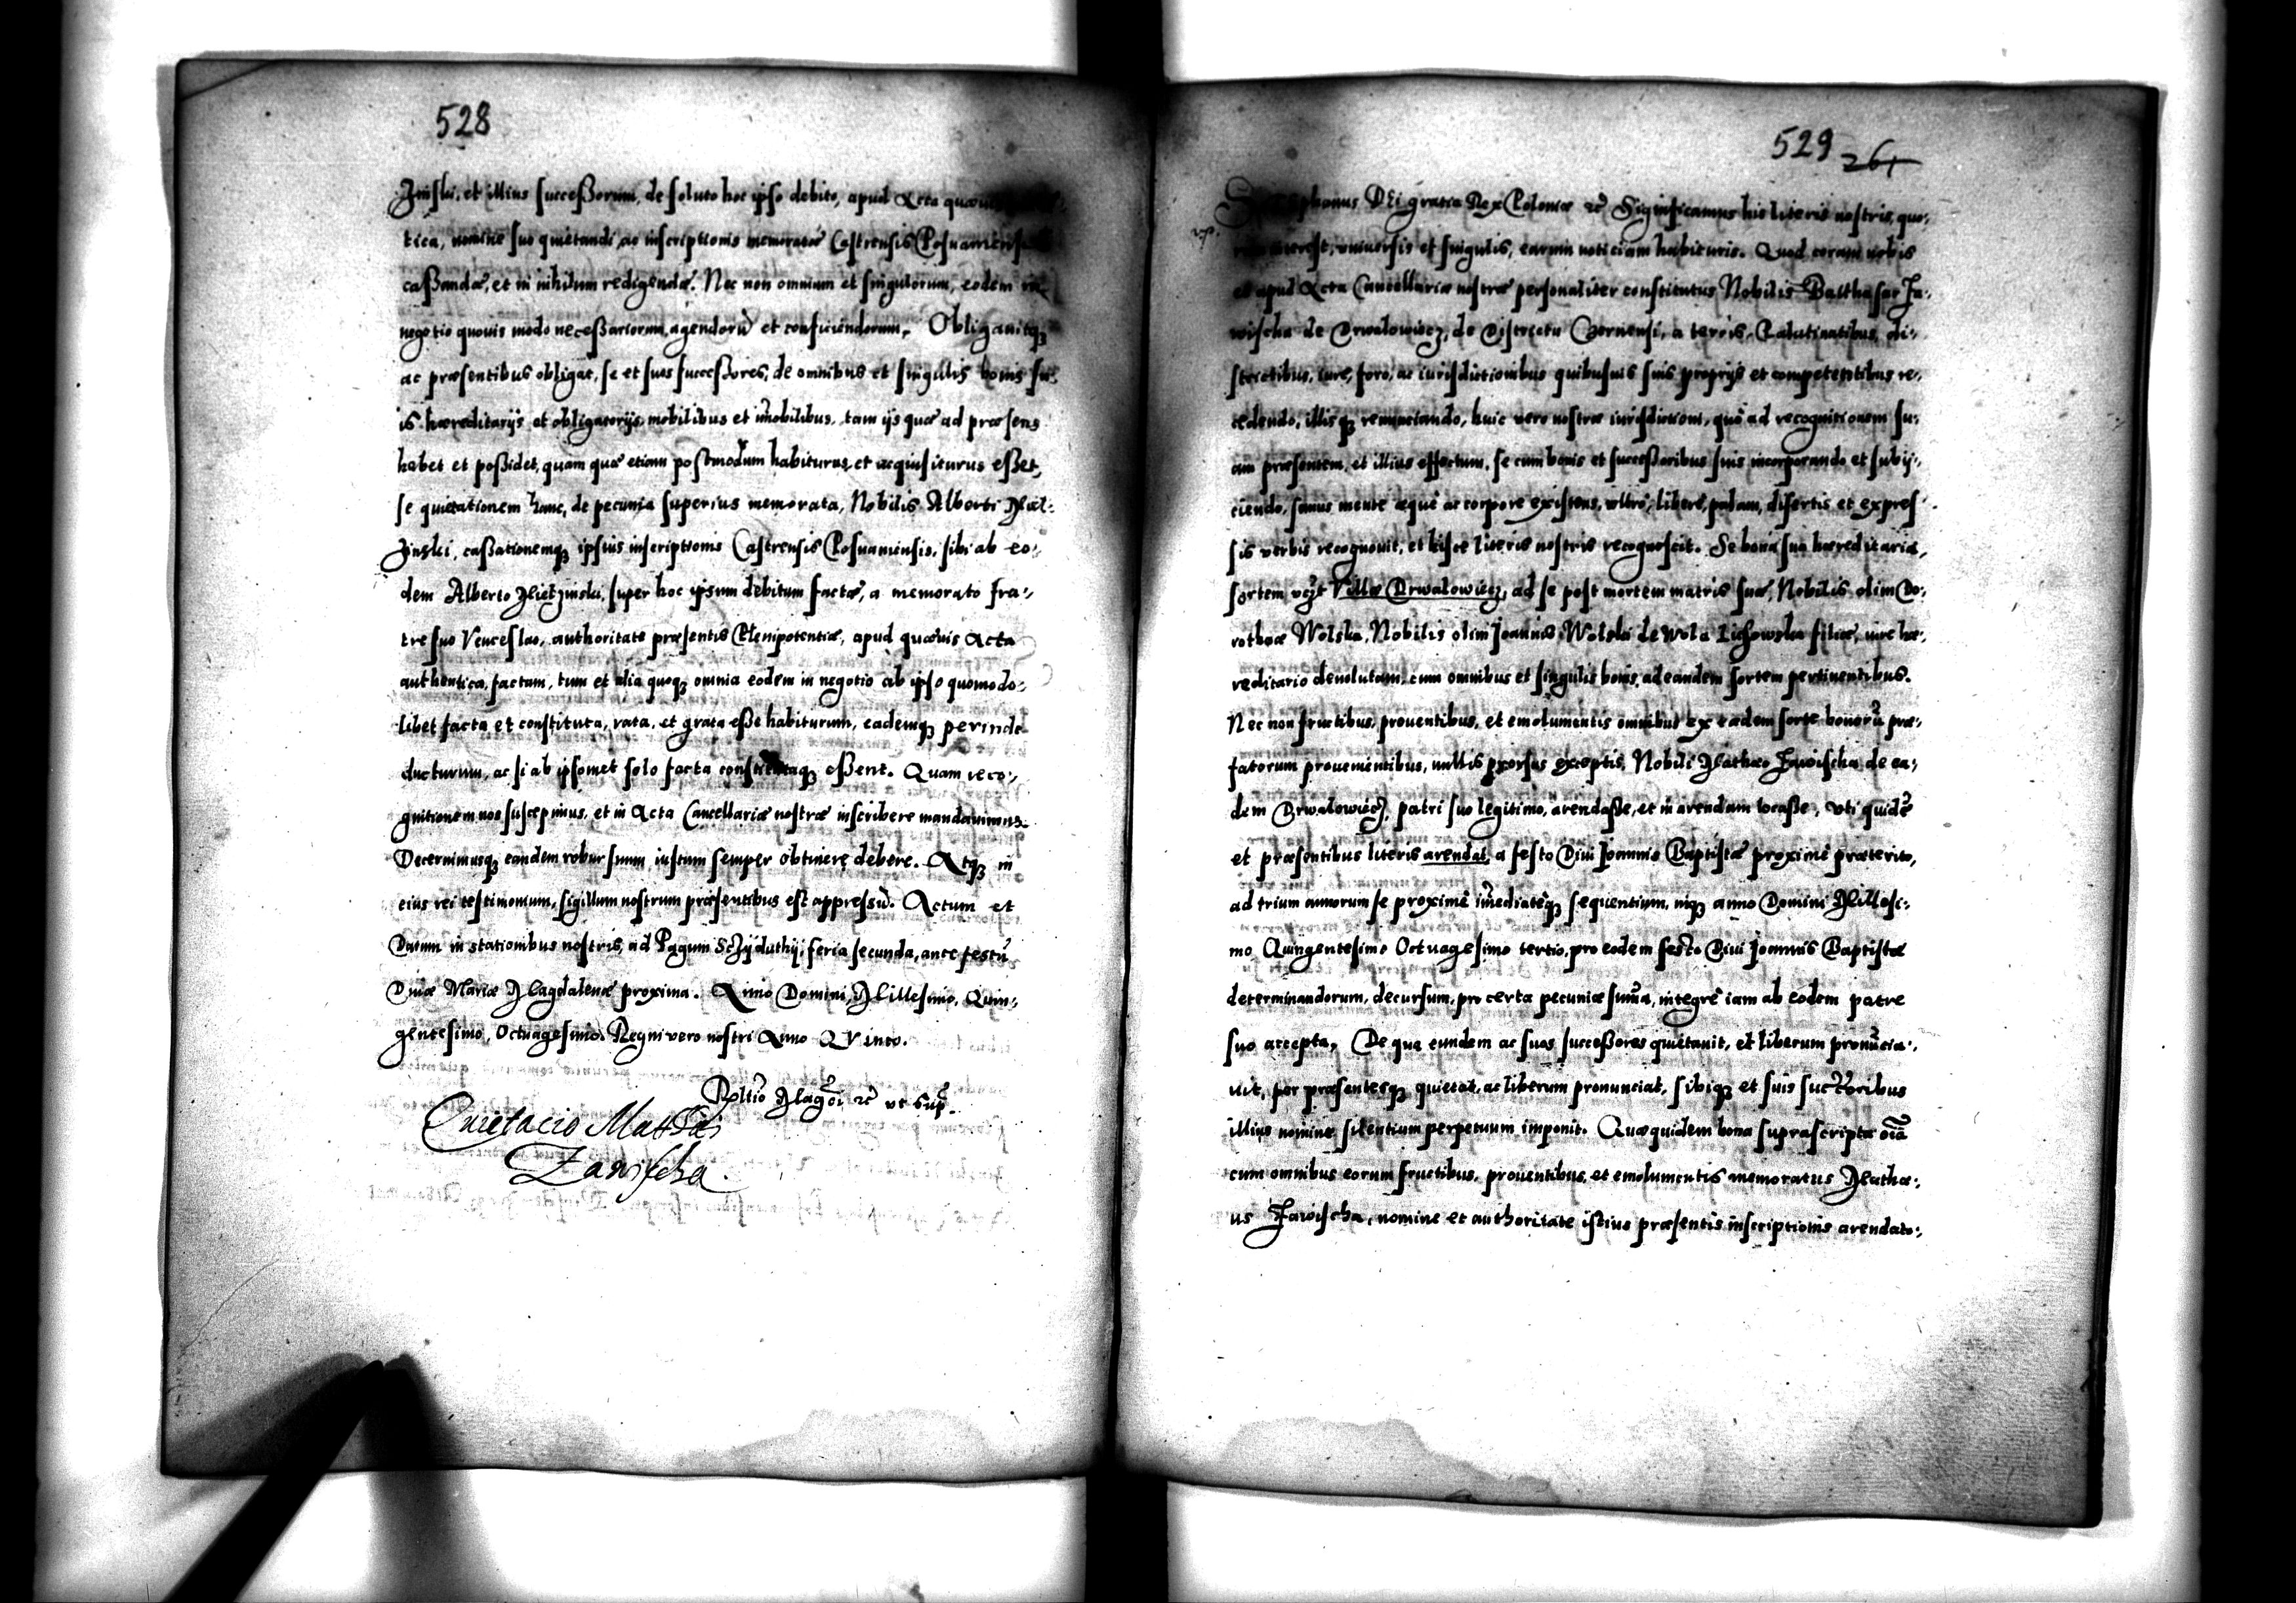 528
zinski, et illius successorum, de soluto hoc ipso debito, apud Acta quævis
tica, nomine suo quietandi, ac inscriptionis memoratæ Castrensis Posnaniensis
cassandæ, et in nihilum redigendæ. Nec non omnium et singulorum, eodem in
negotio quovis modo necessariorum, agendorũ et conficiendorum. Obligavitq3
ac præsentibus obligat, se et suos successores, de omnibus et singulis bonis su:,
is hæreditarijs et obligatorijs, mobilibus et im̃obilibus, tam ijs quæ ad præsens
habet et possidet, quam quæ etiam postmodum habiturus et acquisiturus esset,
se quietationem hanc, de pecunia superius memorata, Nobilis Alberti Miel:,
zinski, cassationemq3 ipsius inscriptionis Castrensis Posnaniensis, sibi ab eo:,
dem Alberto Mielzinski, super hoc ipsum debitum factæ, a memorato fra:,
tre suo Venceslao, authoritate præsentis Plenipotentiæ, apud quævis Acta
authentica, factam, tum et alia quoq3 omnia eodem in negotio ab ipso quomodo:,
libet facta et constituta, rata, et grata esse habiturum, eademq3 perinde
ducturum, ac si ab ipsomet solo facta constitutaq3 essent. Quam reco:,
gnitionem nos suscepimus, et in Acta Cancellariæ nostræ inscribere mandavimus.
Decernimusq3 eandem robur suum, iustum semper obtinere debere. Atq3 in
eius rei testimonium, sigillum nostrum præsentibus est appressũ. Actum et
Datum in stationibus nostris, ad Pagum feria secunda, ante festũ
Divæ Mariæ Magdalenæ proxima. Anno Domini, Millesimo, Quin:,
gentesimo, Octuagesimo. Regni vero nostri Anno Quinto.
ut sup̃.
Quietacio
Zawischa.
529 261
Stephanus Dei gratia Rex Poloniæ etc̃ Significamus his literis nostris, quo:,
rum interest, universis et singulis, earum noticiam habituris. Quod coram nobis
et apud Acta Cancellariæ nostræ personaliter constitutus Nobilis Balthasar Za:,
wischa de Drwalowiecz, de Districtu Czernensi, a terris, Palatinatibus, di:,
strictibus, iure, foro, ac iurisdictionibus quibusvis suis proprijs et competentibus re:,
cedendo, illisq3 renunciando, huic vero nostræ iurisdictioni, quo ad recognitionem su:,
am præsentem, et illius effectum, se cum bonis et successoribus suis incorporando et subij:,
ciendo, sanus mente æque ac corpore existens, ultro, libere, palam, disertis et expres
sis verbis recognovit, et hisce literis nostris recognoscit. Se bona sua hæreditaria,
sortem vczt Villæ Drwalowiecz, ad se post mortem matris suæ, Nobilis olim Do:,
rotheæ Wolska, Nobilis olim Joannis Wolski de Wola filiæ, iure hæ:,
reditario devolutam, cum omnibus et singulis bonis, ad eandem sortem pertinentibus.
Nec non fructibus, proventibus, et emolumentis omnibus ex eadem sorte bonorũ præ:,
fatorum provenientibus, nullis prorsus exceptis, Nobili Mathæo Zawischa de ea:,
dem Drwalowiecz, patri suo legitimo, arendasse, et in arendam locasse, uti quidẽ
et præsentibus literis arendat, a festo Divi Joannis Baptistæ proximè præterito,
ad trium annorum se proximè im̃ediatèq3 sequentium, inq3 anno Domini Millesi:,
mo Quingentesimo Octuagesimo tertio, pro eodem festo Divi Joannis Baptistæ
determinandorum, decursum, pro certa pecuniæ sum̃a, integrè iam ab eodem patre
suo accepta, De qua eundem ac suos successores quietavit, et liberum pronũcia:,
vit, per præsentesq3 quietat, ac liberum pronunciat, sibiq3 et suis
illius nomine, silentium perpetuum imponit. Quæquidem bona suprascripta oĩa
cum omnibus eorum fructibus, proventibus, et emolumentis memoratus Mathæ:,
us Zawischa, nomine et authoritate istius præsentis inscriptionis arendato:,